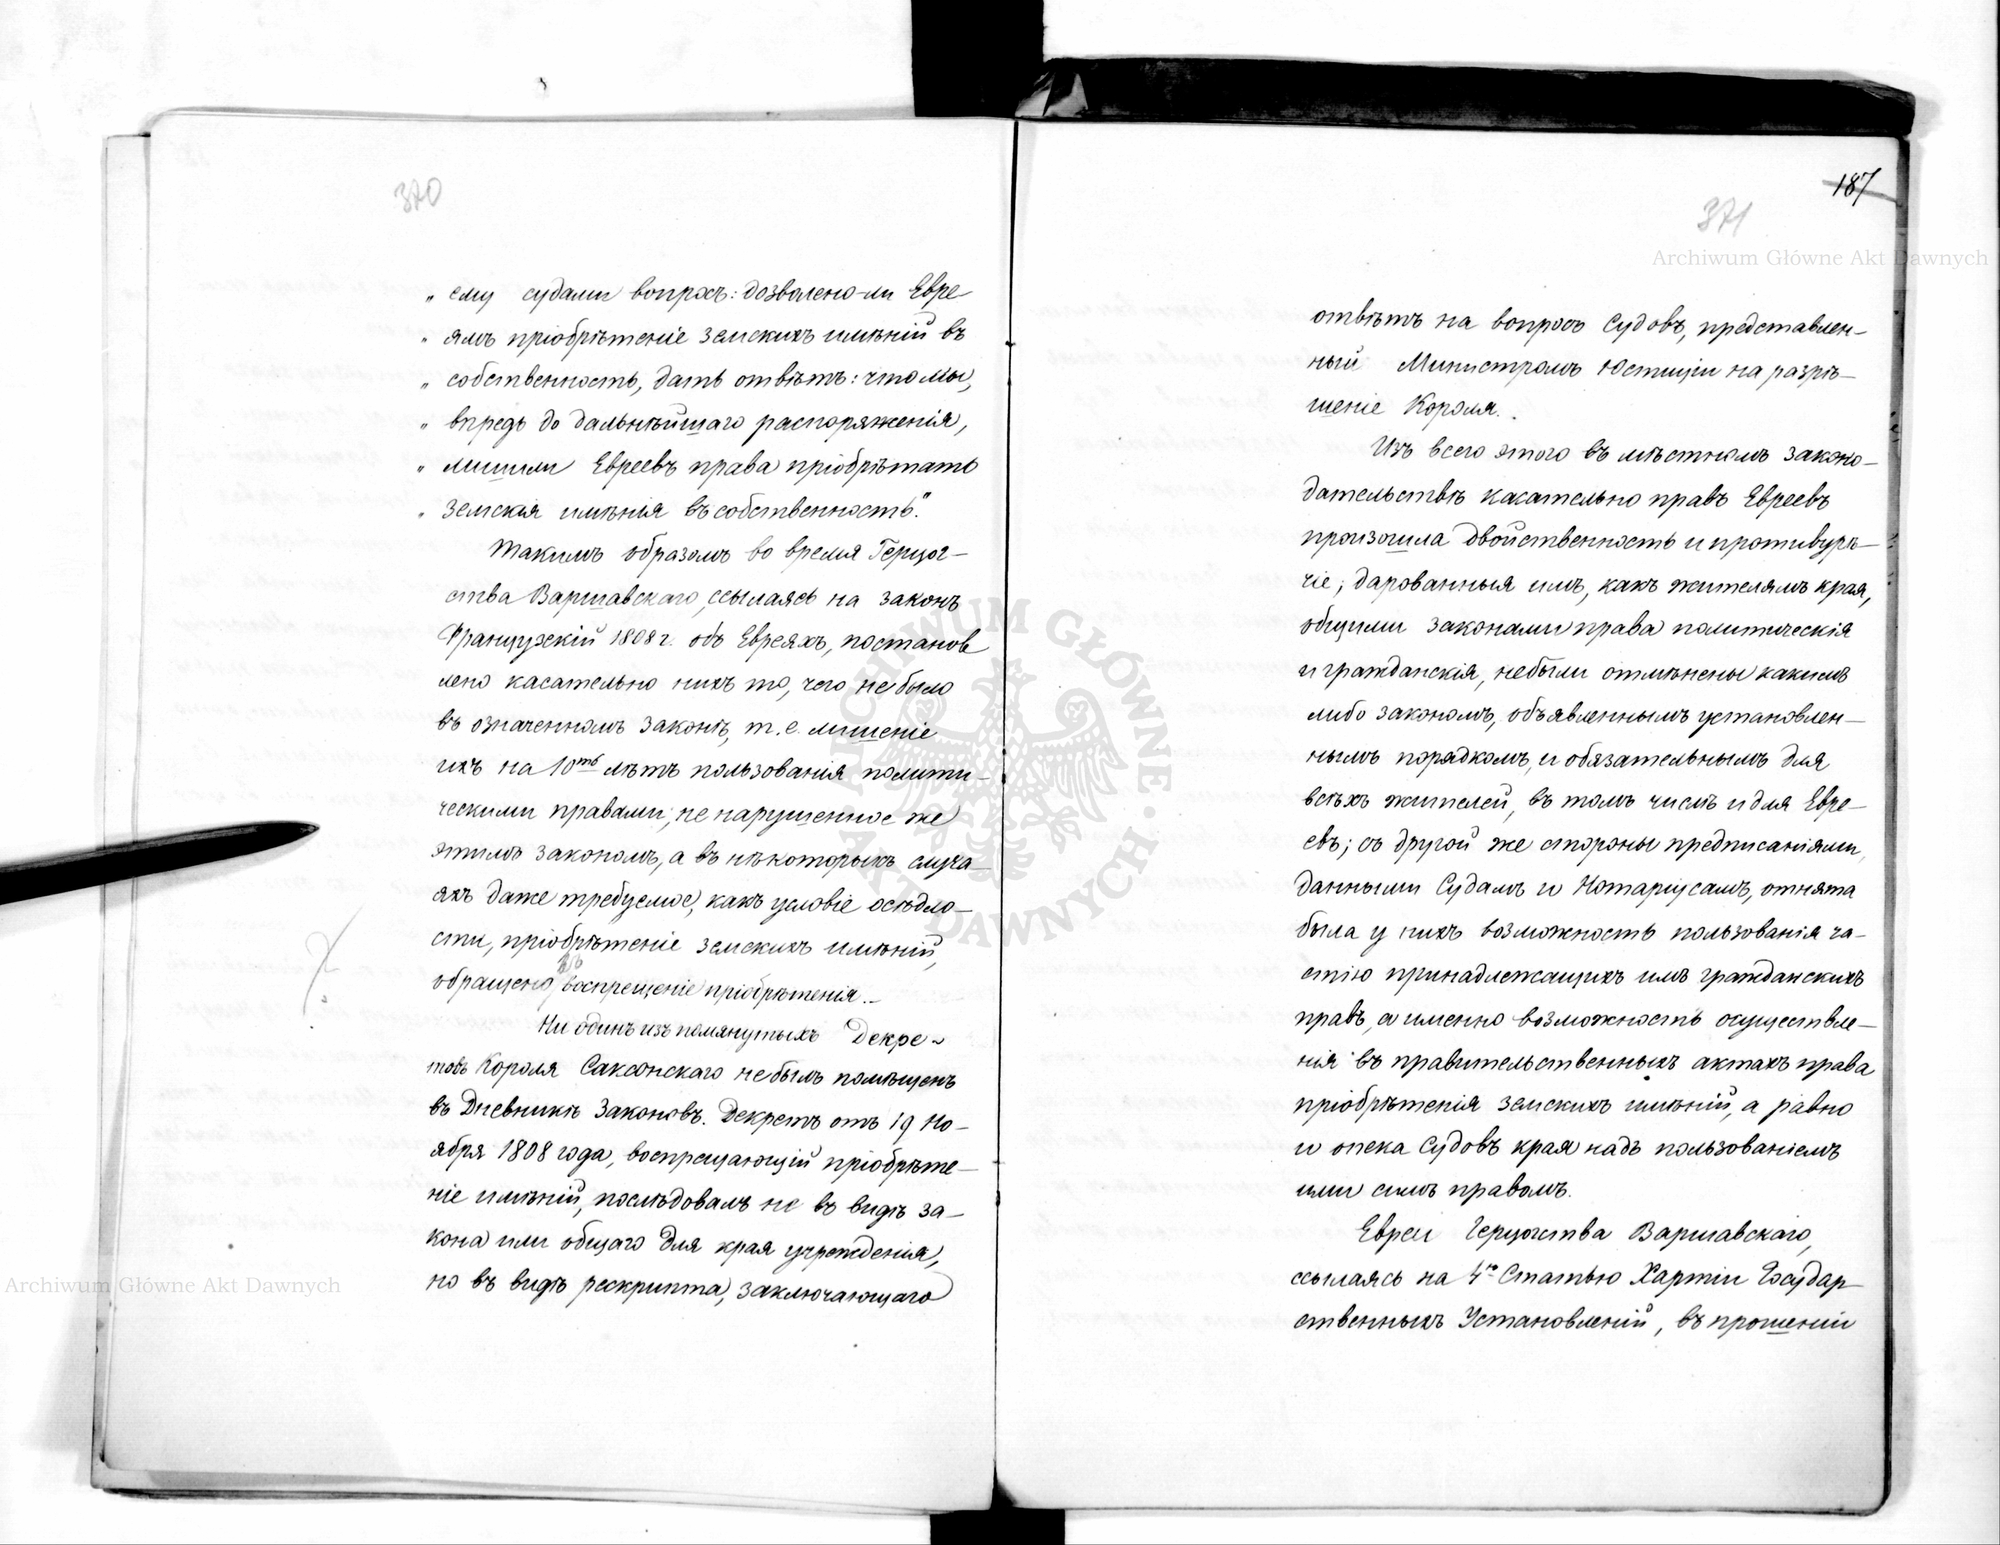 370
„ ему судами вопросъ: дозволено-ли Евре-
„ ямъ пріобрѣтеніе земскихъ имѣній въ
„ собственность, дать отвѣтъ: что мы,
„ впредь до дальнѣйшаго распоряженія,
„ лишили Евреевъ права пріобрѣтать
„ земскія имѣнія въ собственность."
Такимъ образомъ во время Герцог-
ства Варшавскаго, ссылаясь на законъ
Французскій 1808 г. объ Евреяхъ, постанов
лено касательно нихъ то, чего не было
въ означенномъ законѣ, т. е. лишеніе
ихъ на 10ть лѣтъ пользованія полити-
ческими правами; не нарушенное же
этимъ закономъ, а въ нѣкоторыхъ случа-
яхъ даже требуемое, какъ условіе осѣдло-
сти, пріобрѣтеніе земскихъ имѣній,
обращено въ воспрещеніе пріобрѣтенія.
Ни одинъ изъ помянутыхъ Декре-
товъ Короля Саксонскаго не былъ помѣщенъ
въ Дневникѣ Законовъ. Декретъ отъ 19 Но-
ября 1808 года, воспрещающій пріобрѣте-
ніе имѣній, послѣдовалъ не въ видѣ за-
кона или общаго для края учрежденія,
но въ видѣ рескрипта, заключающаго
187
371
отвѣтъ на вопросъ Судовъ, представлен-
ный Министромъ Юстиціи на разрѣ-
шеніе Короля.
Изъ всего этого въ мѣстномъ законо-
дательствѣ касательно правъ Евреевъ
произошла двойственность и противурѣ-
чіе; дарованныя имъ, какъ жителямъ края,
общими законами права политическія
и гражданскія, небыли отмѣнены какимъ
либо закономъ, объявленнымъ установлен-
нымъ порядкомъ, и обязательнымъ для
всѣхъ жителей, въ томъ числѣ и для Евре-
евъ; съ другой же стороны предписаніями,
данными Судамъ и Нотаріусамъ, отнята
была у нихъ возможность пользованія ча-
стію принадлежащихъ имъ гражданскихъ
правъ, а именно возможность осуществле-
нія въ правительственныхъ актахъ права
пріобрѣтенія земскихъ имѣній, а равно
и опека Судовъ края надъ пользованіемъ
ими симъ правомъ.
Евреи Герцогства Варшавскаго,
ссылаясь на 4ю Статью Хартіи Государ
ственныхъ Установленій, въ прошеніи
Archiwum Główne Akt Dawnych
Archiwum Główne Akt Dawnych
ARCHIWUM GŁÓWNE AKT DAWNYCH